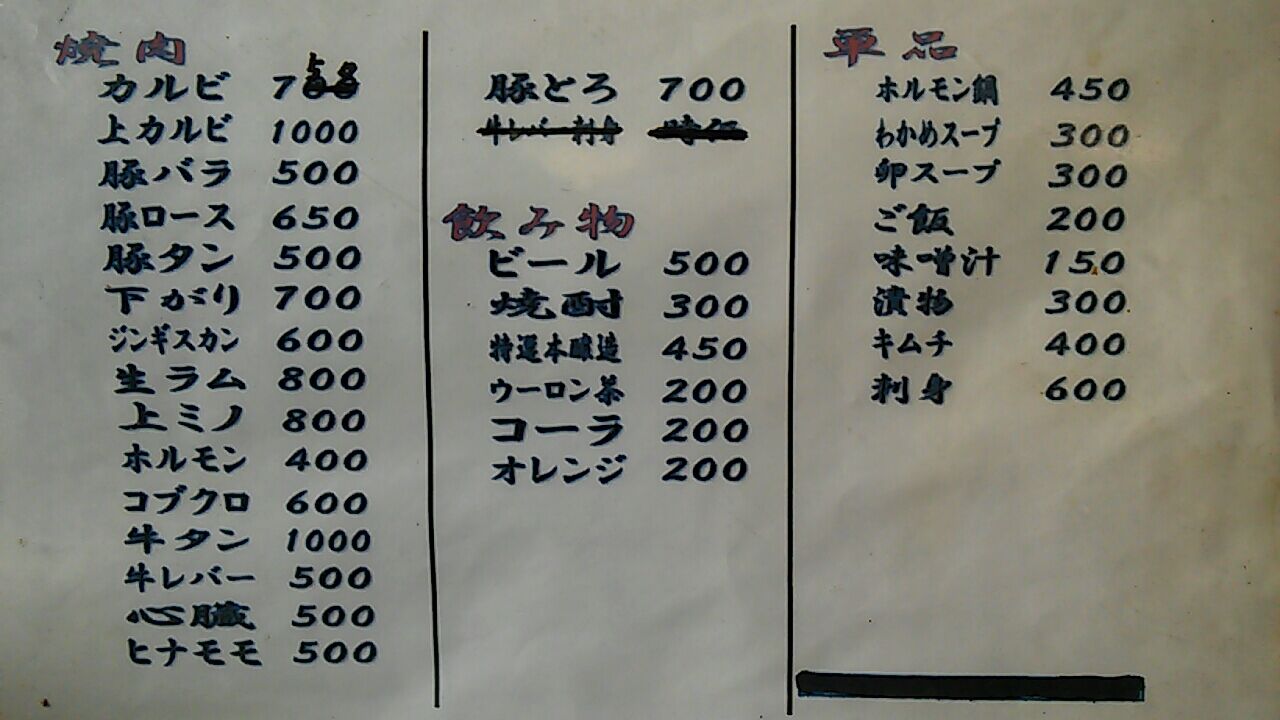 焼肉
カルビ 700
上カルビ 1000
豚バラ 500
豚ロース 650
豚タン 500
下がり 700
ジンギスカン 600
生ラム 800
上ミノ 800
ホルモン 400
コブクロ 600
牛タン 1000
牛レバー 500
心臓 500
ヒナモモ 500
豚とろ 700
牛レバー刺身 時価
飲み物
ビール 500
焼酎 300
特選本醸造 450
ウーロン茶 200
コーラ 200
オレンジ 200
単品
ホルモン鍋 450
わかめスープ 300
卵スープ 300
ご飯 200
味噌汁 150
漬物 300
キムチ 400
刺身 600